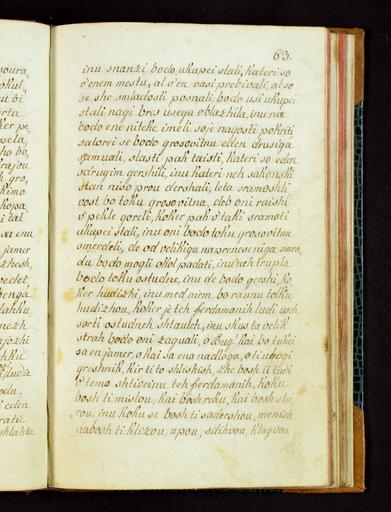 63.
inu snanzi bodo, ukupei stali, kateri so
v'enem mestu, al v'en vasi prebivali, al so
se she smladosti posnali, bodo usi ukupei
stali, nagi bres usega oblazhila, inu na
bodo ene nitke imeli soje nagosti pokriti
satorei se bodo grosovitnu eden drusiga
shamuali, slasti pak taisti, kateri so eden
sdrugim greshili, inu kateri neh sakonski
stan niso prou dershali, leta sramoshli
vost bo toku grosovitna, deb oni raishi
v'pekle goreli, koker pak s'taki sramoti
ukupei stali, inu oni bodo toku grosovitnu
smerdeli, de od velikiga napreneseniga smra
du bodo mogli okol padati, inu neh trupla
bodo toku ostudne, inu de bodo gershi, ko
ker hudizhi, inu med nirm bo raunu tolku
hudizhou, koker je teh ferdamanih ludi usch
sorti ostudneh shtauleh, inu skus ta velik
strah bodo oni zaguali, o Bug. kai bo tukei
sa en jamer, o kai sa ena nadloga, o ti ubogi
greshnik, kir ti to shlishish, zhe bosh ti tudi
k'temo shtiveinu teh ferdamanih, koku
bosh ti mislou, kai bosh reku, kai bosh stu,
rou, inu koku se bosh ti sadershou, menish
nabosh ti klizou, upou, sdihvou, klagvou